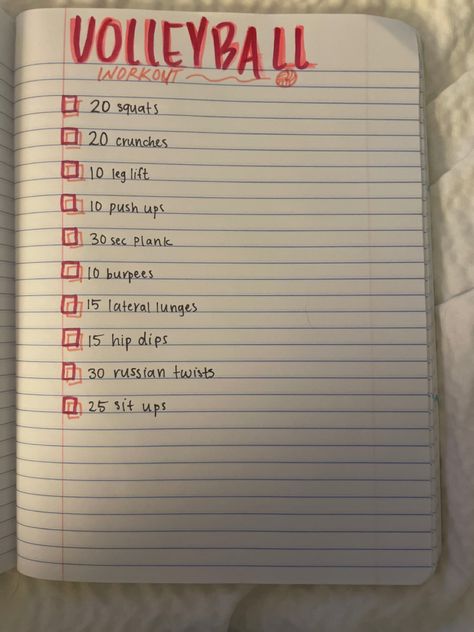 VOLLEYBALL
WORKOUT
20 squats
20 crunches
10 leg lift
10 push ups
30 sec plank
10 burpees
15 lateral lunges
15 hip dips
30 russian twists
25 sit ups